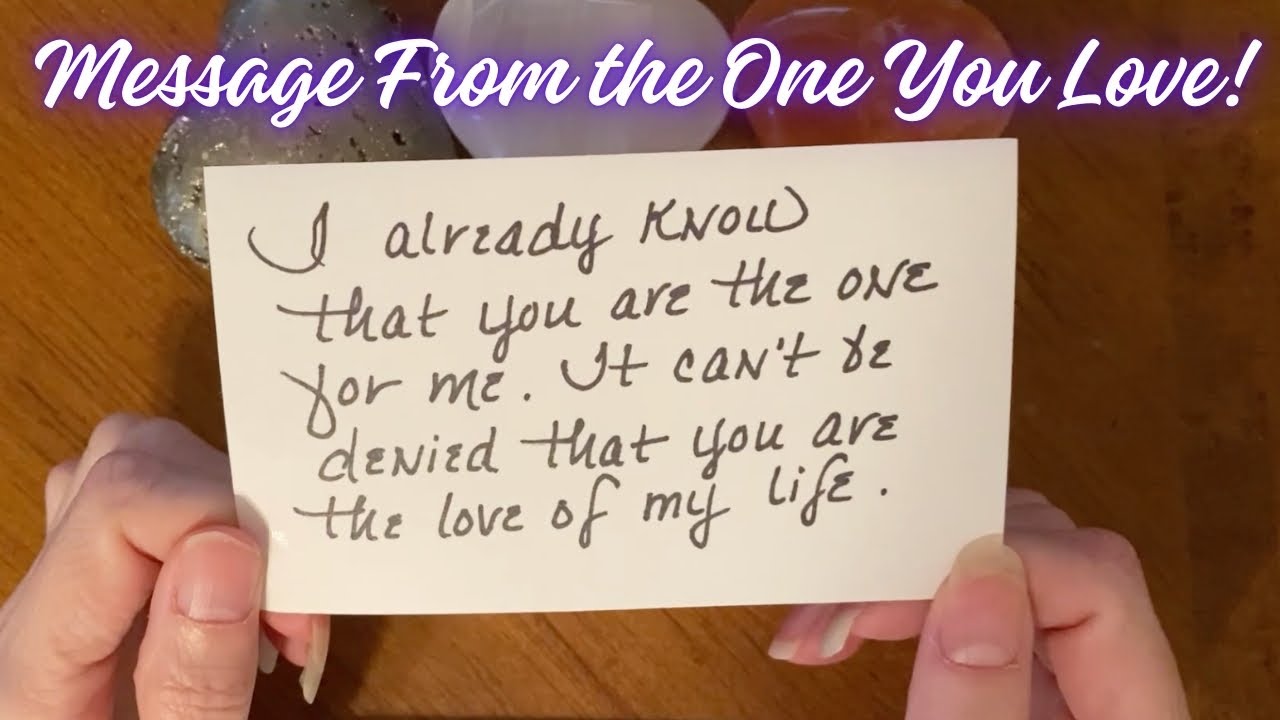 Message From the One You Love!
I already know
that you are the one
for me. It can't be
denied that you are
the love of my life.